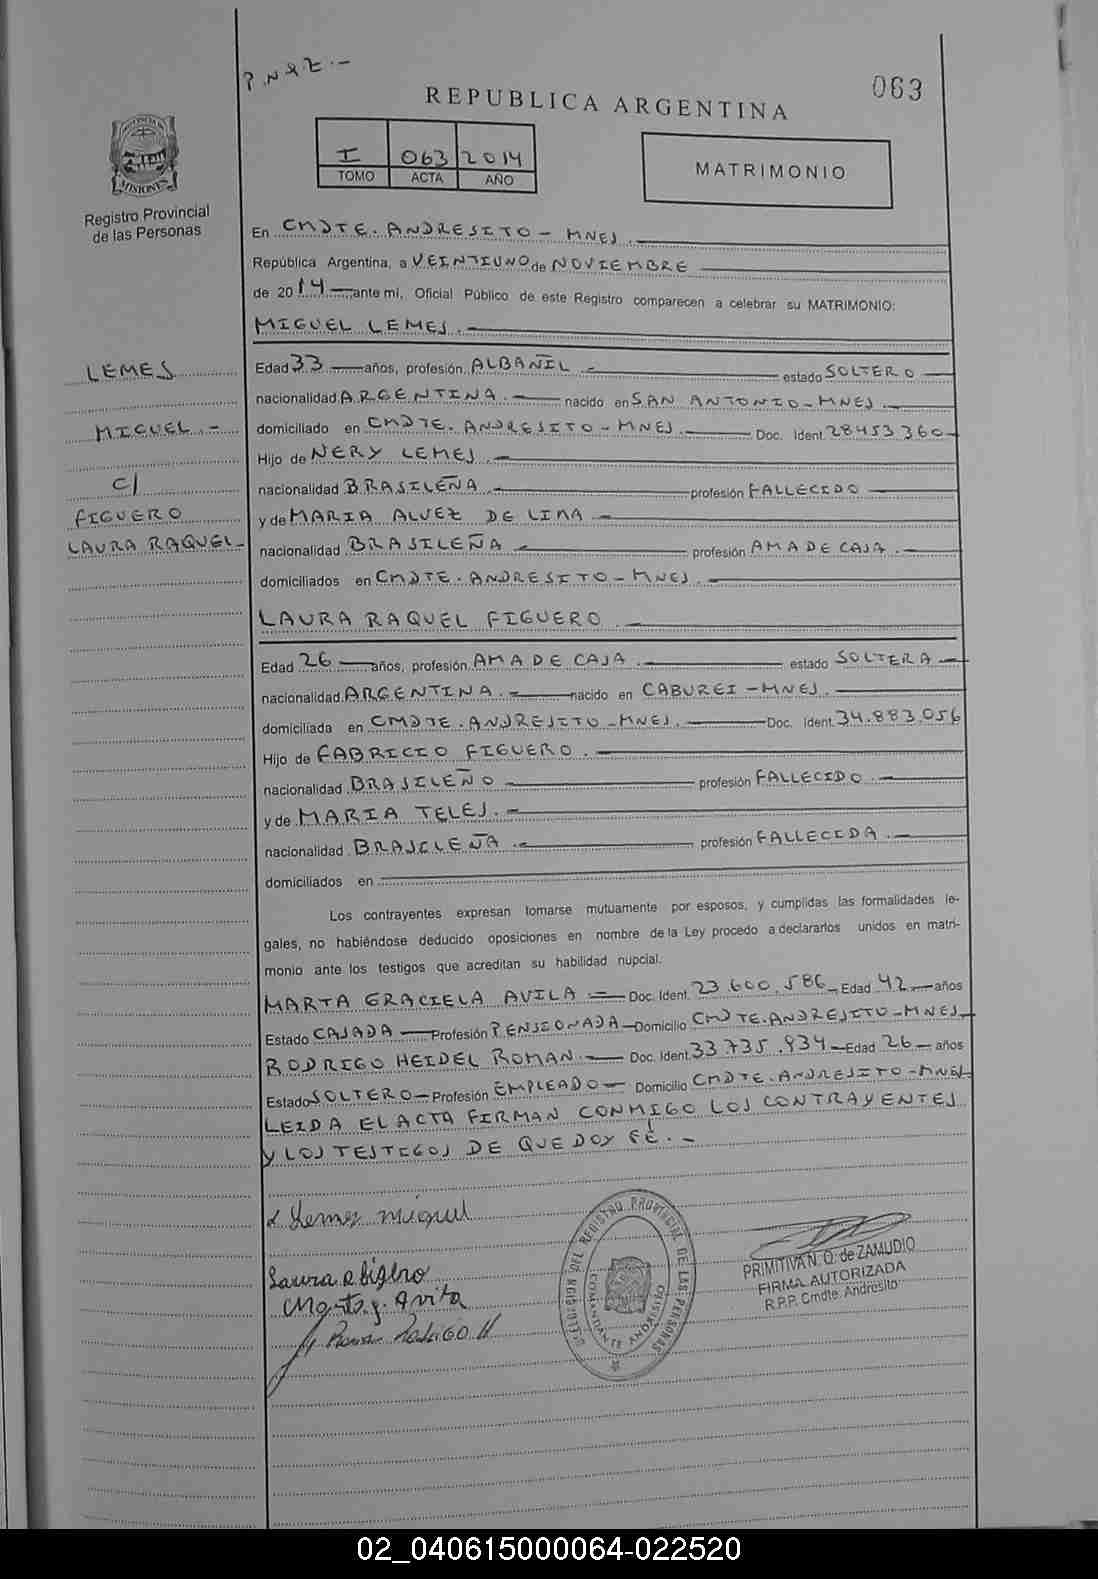 P.N.R.E.-
063
REPUBLICA ARGENTINA
I 063 2014
TOMO ACTA AÑO
MATRIMONIO
PROVINCIA DE MISIONES
Registro Provincial
de las Personas
En CMDTE. ANDRESITO - MNES.
República Argentina, a VEINTIUNO de NOVIEMBRE
de 2014 ante mi, Oficial Público de este Registro comparecen a celebrar su MATRIMONIO:
MIGUEL LEMES.
LEMES
MIGUEL.-
C/
FIGUERO
LAURA RAQUEL-
Edad 33 años, profesión ALBAÑIL - estado SOLTERO
nacionalidad ARGENTINA. nacido en SAN ANTONIO-MNES.
domiciliado en CMDTE. ANDRESITO - MNES. Doc. Ident. 28453360
Hijo de NERY LEMES.
nacionalidad BRASILEÑA profesión FALLECIDO
y de MARIA ALVEZ DE LIMA
nacionalidad BRASILEÑA profesión AMA DE CASA.
domiciliados en CMDTE. ANDRESITO - MNES.
LAURA RAQUEL FIGUERO
Edad 26 años, profesión AMA DE CASA. estado SOLTERA
nacionalidad ARGENTINA. nacido en CABUREI - MNES.
domiciliada en CMDTE. ANDRESITO - MNES. Doc. Ident. 34.883.056
Hijo de FABRICIO FIGUERO.
nacionalidad BRASILEÑO profesión FALLECIDO.
y de MARIA TELES.
nacionalidad BRASILEÑA. profesión FALLECIDA.
domiciliados en
Los contrayentes expresan tomarse mutuamente por esposos, y cumplidas las formalidades le-
gales, no habiéndose deducido oposiciones en nombre de la Ley procedo a declararlos unidos en matri-
monio ante los testigos que acreditan su habilidad nupcial.
MARTA GRACIELA AVILA.- Doc. Ident. 23.600.586 Edad 42 años
Estado CASADA Profesión PENSIONADA Domicilio CMDTE. ANDRESITO-MNES
RODRIGO HEIDEL ROMAN. Doc. Ident. 33.735.934 Edad 26 años
Estado SOLTERO Profesión EMPLEADO Domicilio CMDTE. ANDRESITO-MNES
LEIDA EL ACTA FIRMAN CONMIGO LOS CONTRAYENTES
Y LOS TESTIGOS DE QUE DOY FÉ.-
Lemes Miguel
Laura R Figero
Marta g. Avila
Roman Rodrigo H
DELEGACION DEL REGISTRO PROVINCIAL DE LAS PERSONAS
COMANDANTE ANDRESITO
PRIMITIVA N. O. de ZAMUDIO
FIRMA AUTORIZADA
R.P.P. Cmdte. Andresito
02_040615000064-022520